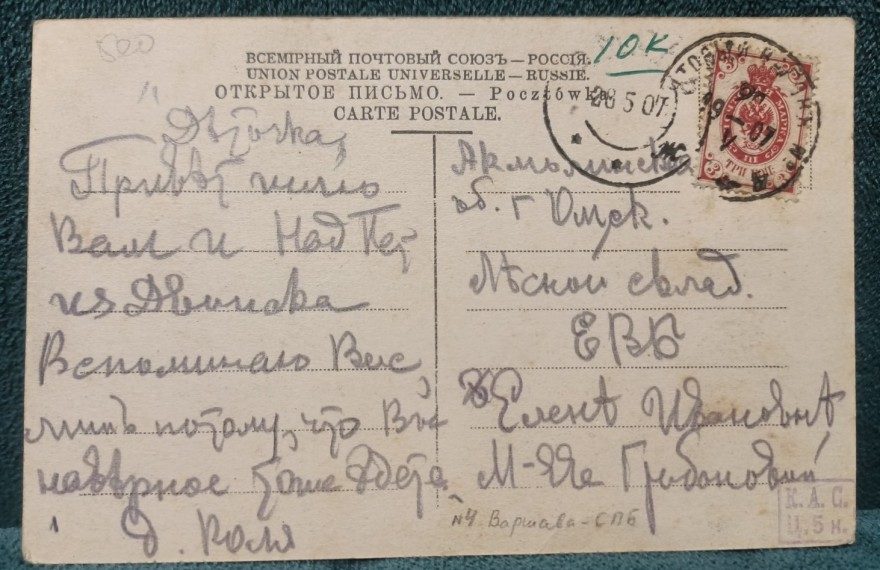 500
ВСЕМІРНЫЙ ПОЧТОВЫЙ СОЮЗЪ — РОССІЯ.
UNION POSTALE UNIVERSELLE — RUSSIE.
ОТКРЫТОЕ ПИСЬМО. — Pocztówka.
CARTE POSTALE.
10К
28 5 07
19
07
МАРКА
III
ТРИ КОП
3
3
Дѣточка,
Привѣт шлю
Вам и Над Пет
из Двинска
Вспоминаю Вас,
лишь потому, что Вы
навѣрное тоже
д. Коля
Акмолинская
об. г Омск.
Лѣсной склад.
ЕВБ
Еленѣ Ивановнѣ,
М-lle
№4 Варшава-СПБ
К. А. С.
Ц. 5 к.